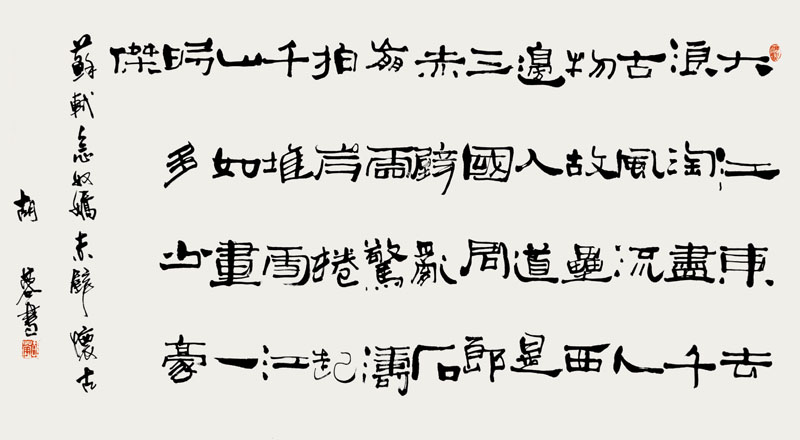 大江東去
浪淘盡千
古風流人
物故壘西
邊人道是
三國周郎
赤壁亂石
崩雲驚濤
拍岸捲起
千堆雪江
山如畫一
時多少豪
傑
蘇軾念奴嬌赤壁懷古
胡蓉書